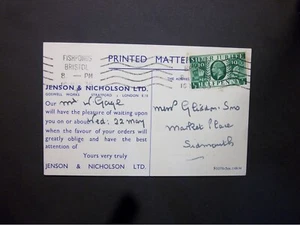 FISHPONDS
BRISTOL
8 - PM
PRINTED MATTER
SILVER JUBILEE
HALFPENNY
JENSON & NICHOLSON LTD.
STRATFORD LONDON E.15
Our Mr W Gage
will have the pleasure of waiting upon
you on or about Wed: 22 May
when the favour of your orders will
greatly oblige and have the best
attention of
Yours very truly
JENSON & NICHOLSON LTD.
Messrs Gliddon & Sons
Market Place
Sidmouth